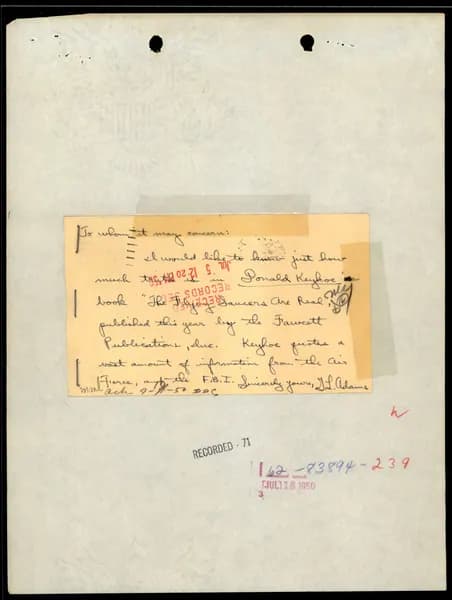 To whom it may concern:
I would like to know just how
much truth is in Donald Keyhoe's
book "The Flying Saucers Are Real",
published this year by the Fawcett
Publications, Inc. Keyhoe quotes a
vast amount of information from the Air
Force, and the F.B.I. Sincerely yours,
JUL 5 12 20 PM
RECEIVED
RECORDS SEC
ack
RECORDED - 71
62-83894-239
JUL 18 1950
3